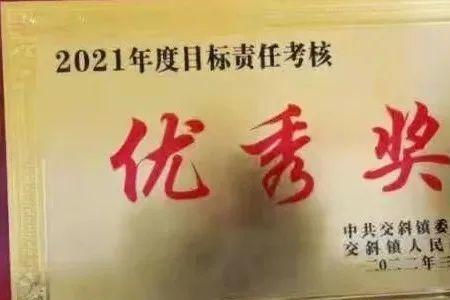 2021年度目标责任考核
优秀奖
中共交斜镇委
交斜镇人民
二〇二二年三